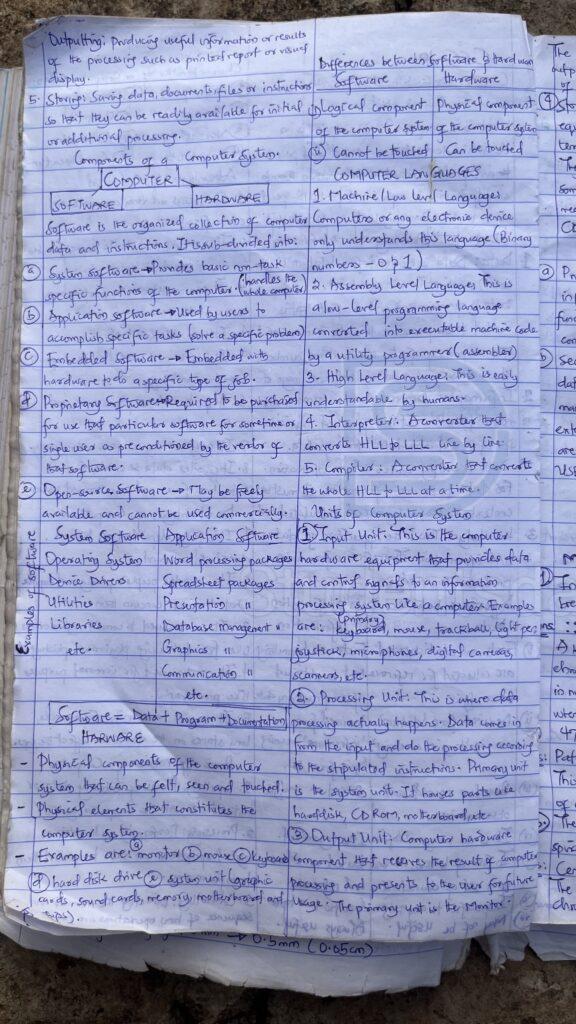 Outputting: Producing useful information or results
of the processing such as printed report or visual
display.
5. Storing: Saving data, documents, files or instructions
so that they can be readily available for initial
or additional processing.
Components of a Computer System.
COMPUTER
SOFTWARE HARDWARE
Software is the organized collection of computer
data and instructions. It is sub-divided into:
(a) System software → Provides basic non-task
specific functions of the computer. (handles the
whole computer)
(b) Application software → Used by users to
accomplish specific tasks (solve a specific problem)
(c) Embedded Software → Embedded with
hardware to do a specific type of job.
(d) Proprietary Software → Required to be purchased
for use that particular software for sometime or
single user as preconditioned by the vendor of
that software.
(e) Open-source Software → May be freely
available and cannot be used commercially.
Examples of software
System Software Application Software
Operating System Word processing packages
Device Drivers Spreadsheet packages
Utilities Presentation "
Libraries Database management "
etc. Graphics "
Communication "
etc.
Software = Data + Program + Documentation
HARWARE
- Physical components of the computer
system that can be felt, seen and touched.
- Physical elements that constitutes the
computer system.
- Examples are: (a) monitor (b) mouse (c) keyboard
(d) hard disk drive (e) system unit (graphic
cards, sound cards, memory, motherboard and
chips).
Differences between Software & Hardware
Software Hardware
(i) Logical component Physical component
of the computer system of the computer system
(ii) Cannot be touched Can be touched
COMPUTER LANGUAGES
1. Machine/Low Level Languages
Computers or any electronic device
only understands this language (Binary
numbers - 0 & 1)
2. Assembly Level Language: This is
a low-level programming language
converted into executable machine code
by a utility programmer (assembler)
3. High Level Language: This is easily
understandable by humans.
4. Interpreter: A converter that
converts HLL to LLL line by line
5. Compiler: A converter that converts
the whole HLL to LLL at a time.
Units of Computer System
(1) Input Unit: This is the computer
hardware equipment that provides data
and control signals to an information
processing system like a computer. Examples
are: keyboard (primary), mouse, trackball, light pen,
joystick, microphones, digital cameras,
scanners, etc.
(2) Processing Unit: This is where data
processing actually happens. Data comes in
from the input and do the processing according
to the stipulated instructions. Primary unit
is the system unit. It houses parts like
harddisk, CD Rom, motherboard, etc
(3) Output Unit: Computer hardware
component that receives the result of computer
processing and presents to the user for future
usage: The primary unit is the Monitor.
→ 0.5mm (0.05cm)